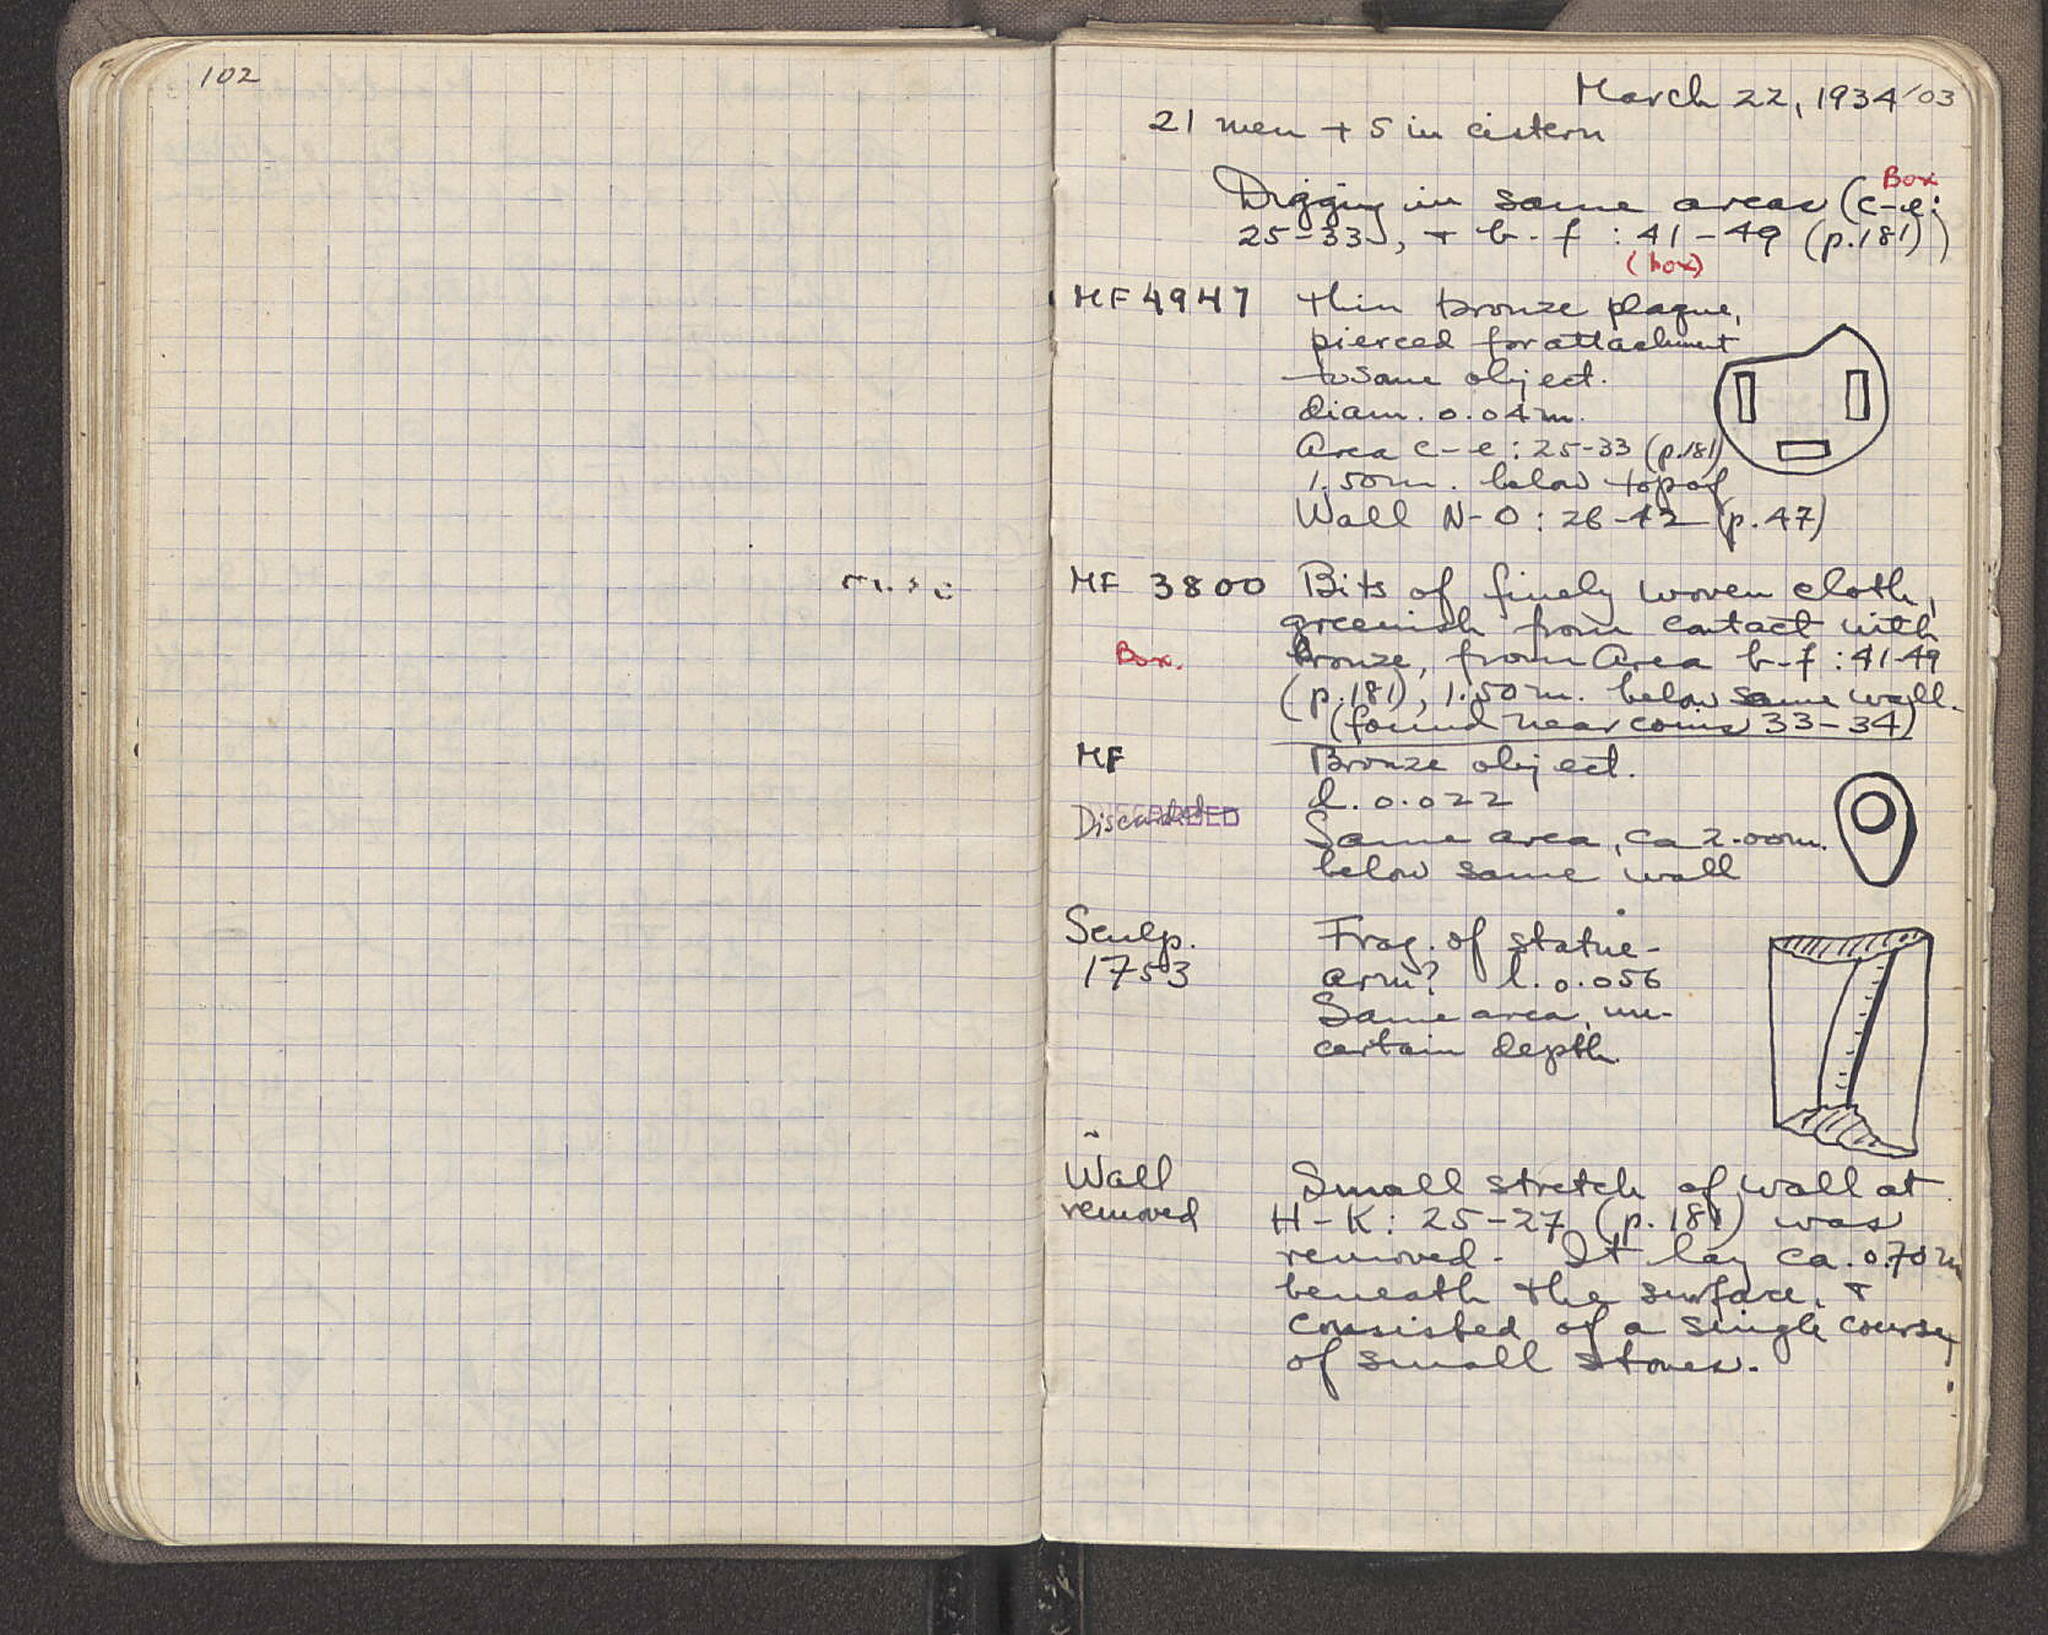 102
March 22, 1934 103
21 men + 5 in cistern
Box
Digging in same areas (c-e:
25-33), + b-f : 41-49 (p.181))
(box)
MF 4947 Thin bronze plaque,
pierced for attachment
to some object.
diam. 0.04m.
Area c-e: 25-33 (p.181)
1.50m. below top of
Wall N-O: 26-42 (p.47)
MF 3800 Bits of finely woven cloth,
greenish from contact with
Box. bronze, from Area b-f : 41-49
(p.181), 1.50m. below same wall.
(found near coins 33-34)
MF Bronze object.
l. 0.022
Discarded DISCARDED
Same area, ca 2.00m.
below same wall
Sculp. Frag. of statue-
1753 arm? l. 0.056
Same area, un-
certain depth.
Wall Small stretch of wall at
removed H-K: 25-27 (p.181) was
removed. It lay ca. 0.70m
beneath the surface, +
consisted of a single course
of small stones.